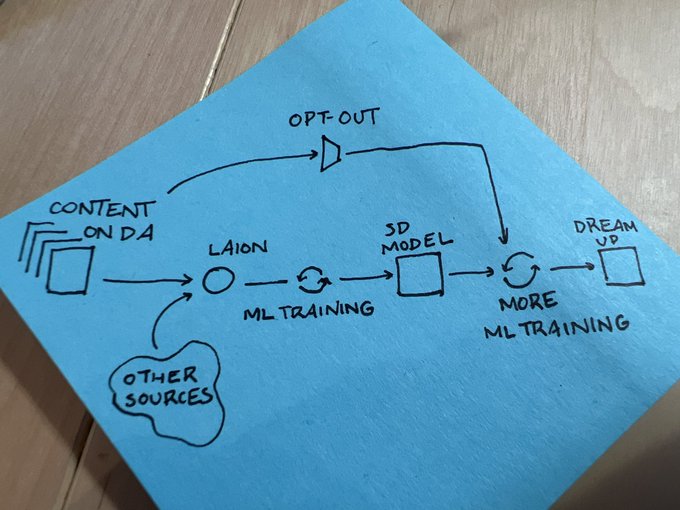 OPT-OUT
CONTENT
ON DA
LAION
SD
MODEL
DREAM
UP
ML TRAINING
MORE
ML TRAINING
OTHER
SOURCES